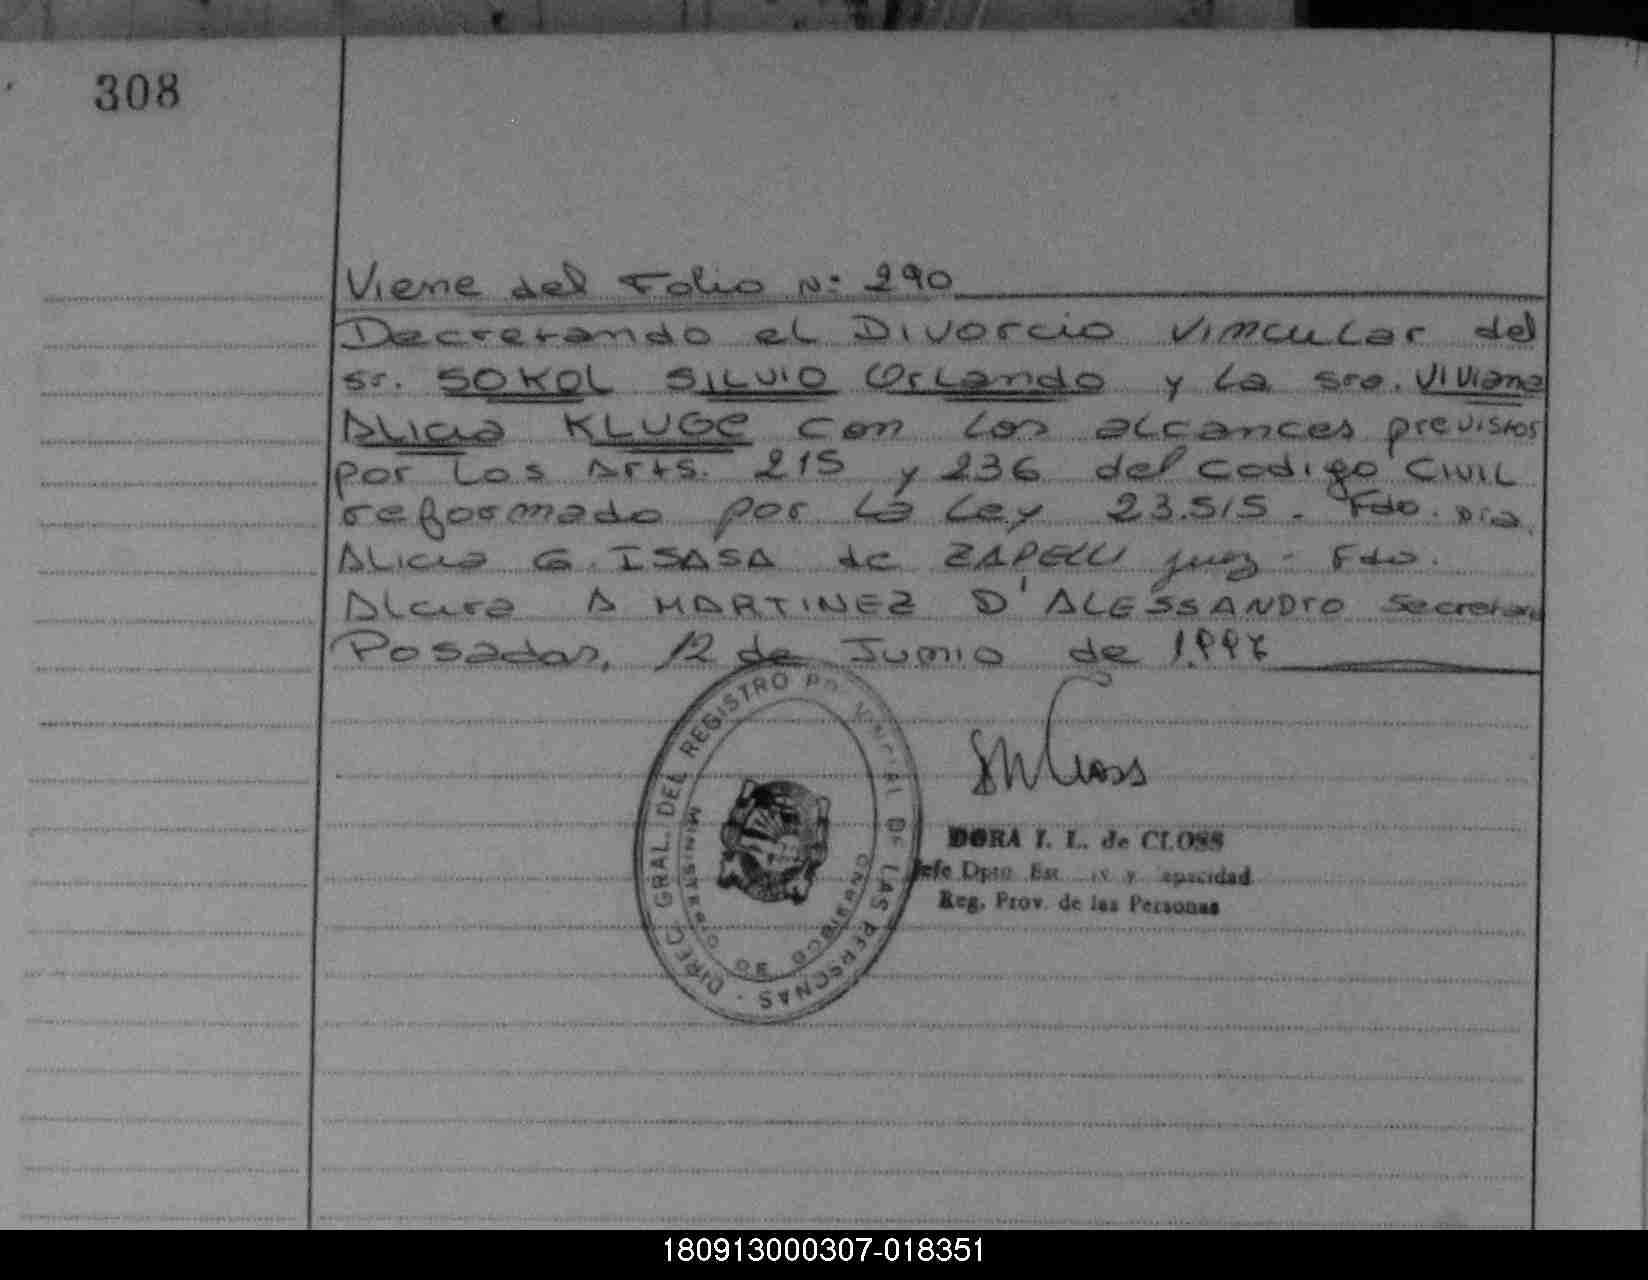 308
Viene del Folio N: 290
Decretando el Divorcio Vincular del
sr. SOKOL SILVIO Orlando y la sra. Viviana
Alicia KLUGE con los alcances previstos
por los Arts. 215 y 236 del codigo CIVIL
reformado por la Ley 23.515. Fdo. Dra.
Alicia G. ISASA de ZAPELLI juez - Fdo.
A MARTINEZ D'ALESSANDRO Secretaria
Posadas, 12 de Junio de
DIREC. GRAL. DEL REGISTRO PROVINCIAL DE LAS PERSONAS
MINISTERIO DE GOBIERNO
Closs
DORA I. L. de CLOSS
Jefe Dpto y apacidad
Reg. Prov. de las Personas
180913000307-018351